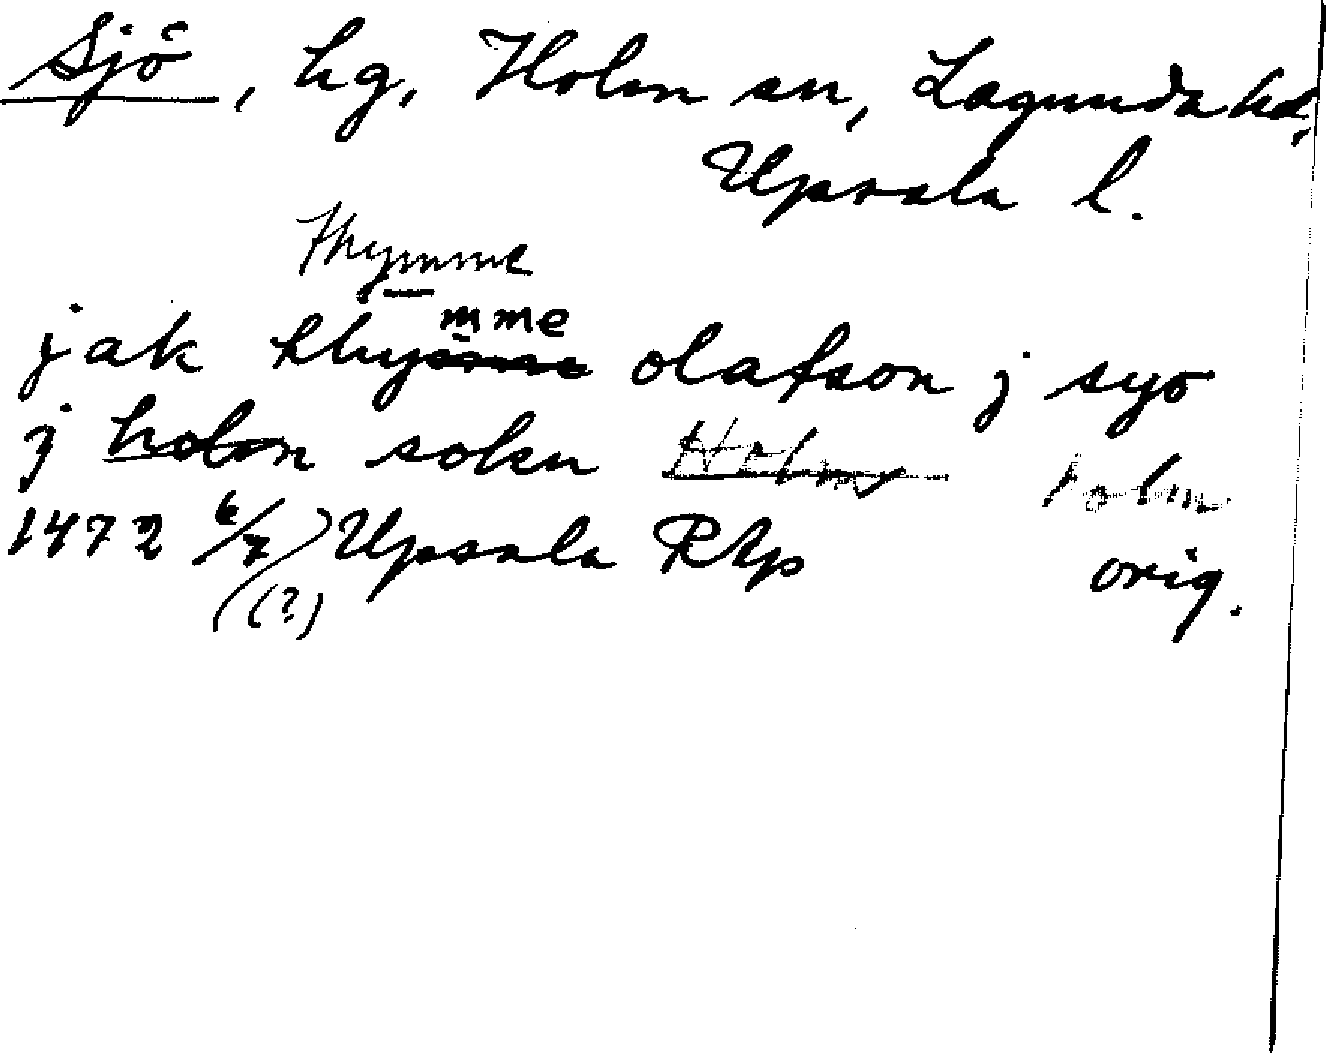 Sjö, hg, Holm sn, Lagunda hd,
Upsala l.
Thymme
mme
jak thymme olafson j syo
j holm sokn Holm holm
1472 6/7 Upsala RAp orig.
(?)